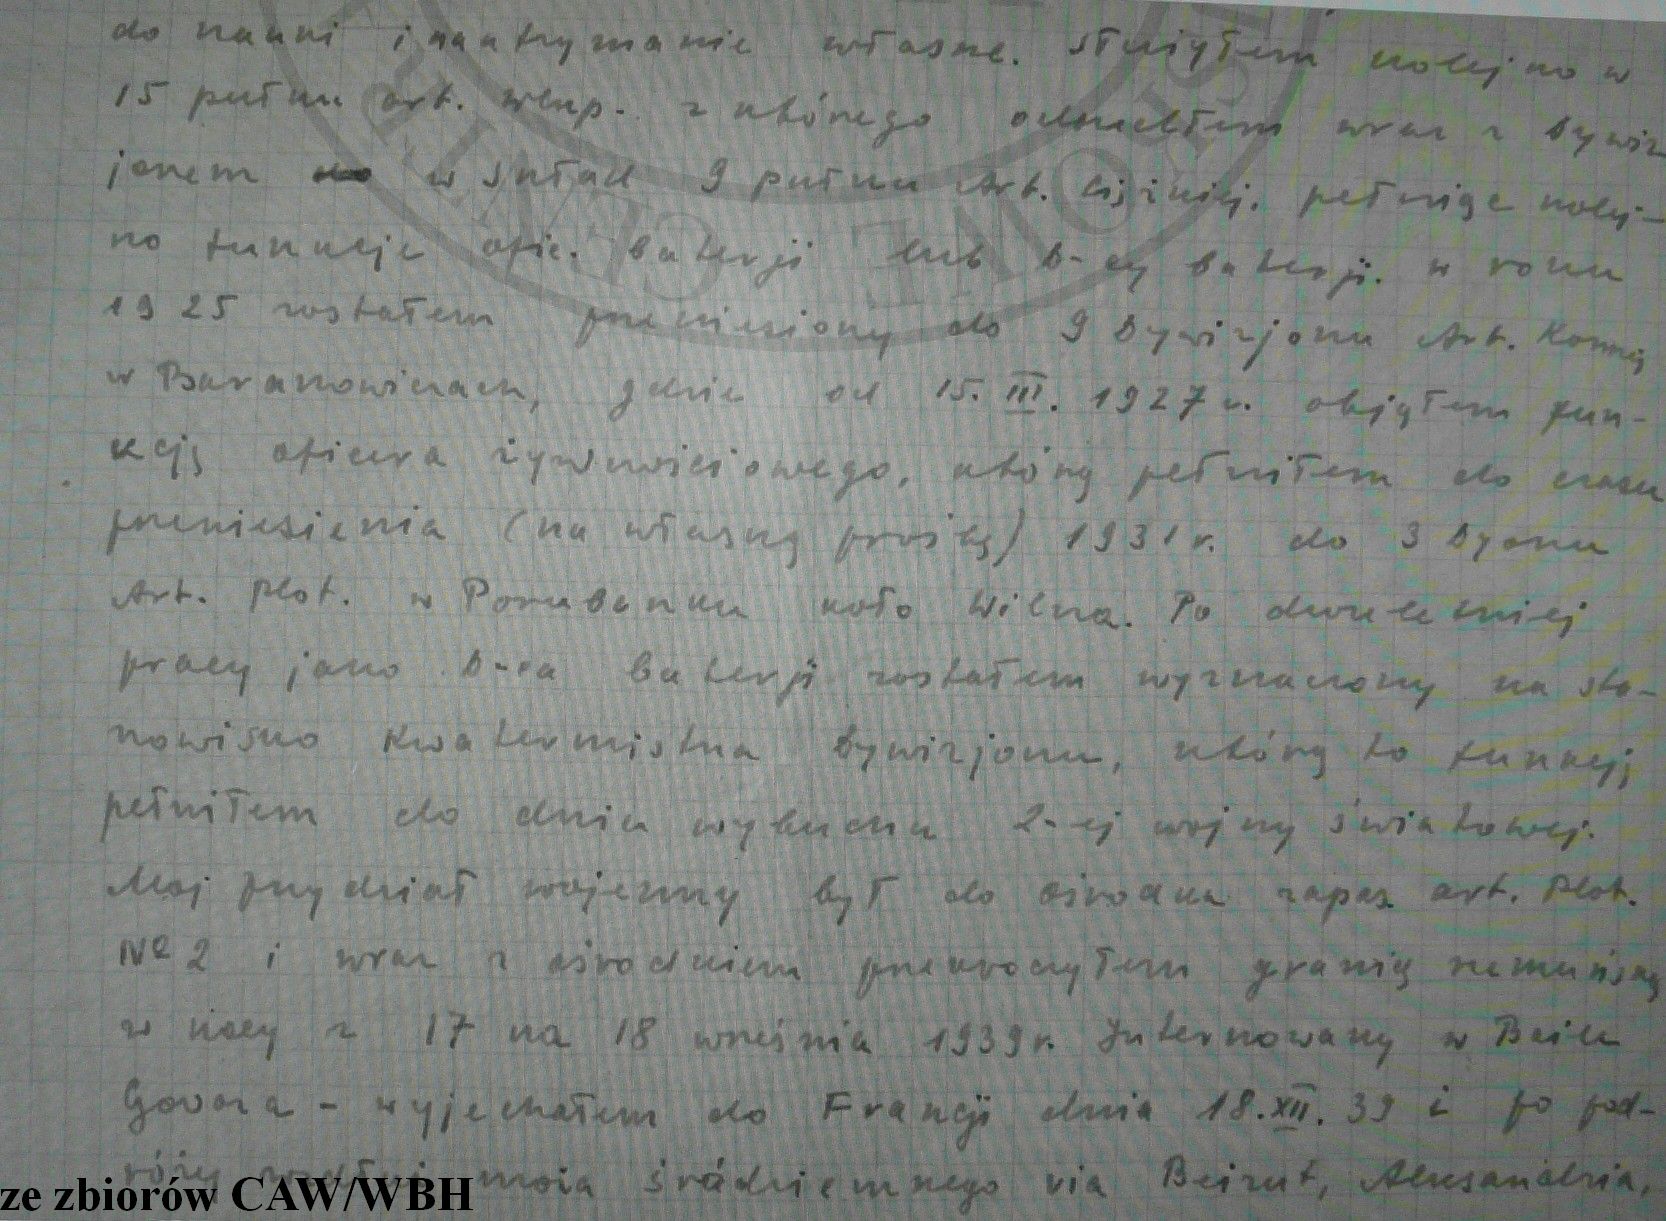 do nauki i na utrzymanie własne. Służyłem kolejno w
15 pułku art. wlkp. z którego odszedłem wraz z Dywiz
jonem w skład 9 pułku Art. Ciężkiej. pełniąc kolej-
no funkcje ofic. baterji lub D-cy baterji. w roku
1925 zostałem przeniesiony do 9 Dywizjonu Art. Konnej
w Baranowiczach, gdzie od 15. III. 1927 r. objąłem fun-
kcję oficera żywnościowego, którą pełniłem do czasu
przeniesienia (na własną prośbę) 1931 r. do 3 Dyonu
Art. Plot. w Porubanku koło Wilna. Po dwuletniej
pracy jako D-ca baterji zostałem wyznaczony na sta-
nowisko Kwatermistrza Dywizjonu, którą to funkcję
pełniłem do dnia wybuchu 2-ej wojny światowej.
Mój przydział wojenny był do ośrodka zapas. art. Plot.
№ 2 i wraz z ośrodkiem przekroczyłem granicę rumuńską
w nocy z 17 na 18 września 1939 r. Internowany w Baile
Govora - wyjechałem do Francji dnia 18. XII. 39 i po pod-
róży morza śródziemnego via Beirut, Aleksandria,
ze zbiorów CAW/WBH